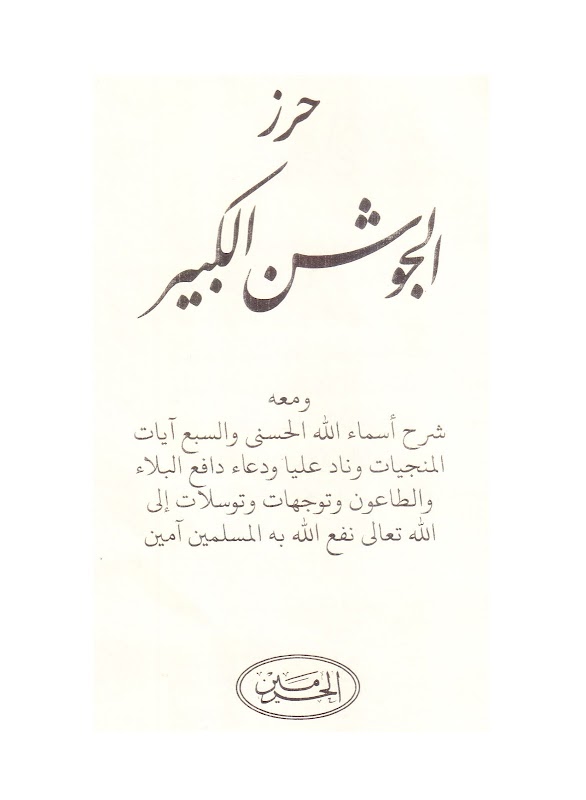 حرز
الجوشن الكبير
ومعه
شرح أسماء الله الحسنى والسبع آيات
المنجيات وناد عليا ودعاء دافع البلاء
والطاعون وتوجهات وتوسلات إلى
الله تعالى نفع الله به المسلمين آمين
الحرمين